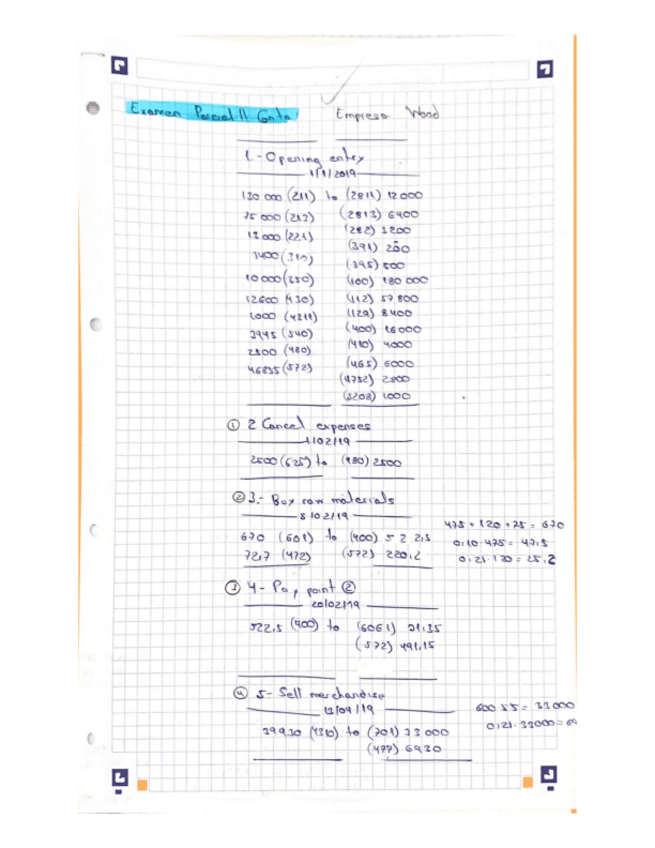 Examen Parcial II Conta Empresa Wood
1.- Opening entry
1/1/2019
130 000 (211) to (2811) 12 000
75 000 (213) (2813) 6400
18 000 (221) (282) 3200
3400 (310) (391) 200
(395) 500
10 000 (350) (100) 180 000
12600 (430) (112) 57 800
1000 (4311) (129) 8400
3945 (540) (400) 16 000
2500 (480) (410) 4000
46855 (572) (465) 6000
(4752) 2800
(5208) 1000
① 2 Cancel expenses
1/02/19
2500 (625) to (480) 2500
② 3.- Buy raw materials
5/02/19
475 + 120 + 75 = 670
670 (601) to (400) 522,5
0,10 · 475 = 47,5
72,7 (472) (572) 220,2
0,21 · 120 = 25,2
③ 4- Pay point ②
20/02/19
522,5 (400) to (6061) 31,35
(572) 491,15
④ 5- Sell merchandise
13/04/19
600 · 55 = 33 000
0,21 · 33000 = 69
39930 (4310) to (701) 33 000
(477) 6930